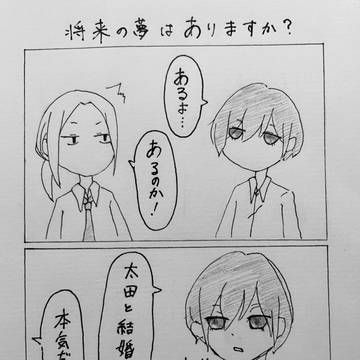 将来の夢はありますか？
あるよ…
あるのか！
太田と結婚
本気だ